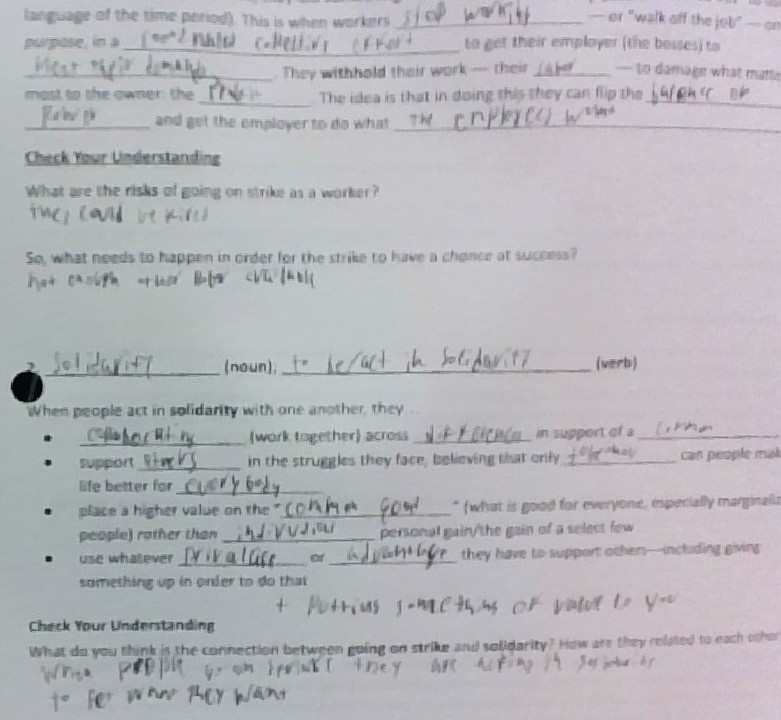 language of the time period). This is when workers stop working — or "walk off the job" — on
purpose, in a coordinated collective effort to get their employer (the bosses) to
meet their demands. They withhold their work — their labor — to damage what matte
most to the owner: the profit. The idea is that in doing this they can flip the balance of
power and get the employer to do what the employees want
Check Your Understanding
What are the risks of going on strike as a worker?
they could be fired
So, what needs to happen in order for the strike to have a chance at success?
not enough other labor available
2. solidarity (noun); to be/act in solidarity (verb)
When people act in solidarity with one another, they...
• (work together) across difference in support of a common
• support others in the struggles they face, believing that only together can people mak
life better for everybody
• place a higher value on the "common good" (what is good for everyone, especially marginaliz
people) rather than personal gain/the gain of a select few
• use whatever or advantage they have to support others—including giving
something up in order to do that
+ something of value to you
Check Your Understanding
What do you think is the connection between going on strike and solidarity? How are they related to each other
When people go on they are acting in
to get what they want